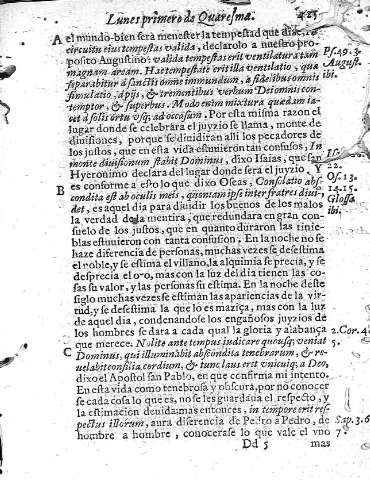 Lunes primero de Quaresma. 425
A el mundo bien será menester la tempestad que dize, in
circuitu eius tempestas valida, declarolo a nuestro pro-
posito Augustino: valida tempestas erit ventilatura tam
magnam aream. Hac tempestate erit illa ventilatio, qua
separabitur à sanctis omne immundum, a fidelibus omnis
simulatio, a pijs, & trementibus verbum Dei omnis con-
temptor, & superbus. Modo enim mixtura quedam ia-
cet à solis ortu vsq; ad occasum. Por esta misma razon el
lugar donde se celebrará el juyzio se llama, monte de
diuisiones, porque se diuidiran alli los pecadores de
los justos, que en esta vida estuuieron tan confusos, In
monte diuisionum stabit Dominus, dixo Isaias, que san
Hyeronimo declara del lugar donde será el juyzio. Y
B es conforme a esto lo que dixo Oseas, Consolatio abs-
condita est ab oculis meis, quoniam ipse inter fratres diui-
det, es aquel dia para diuidir los buenos de los malos
la verdad de la mentira, que redundara en gran con-
suelo de los justos, que en quanto duraron las tinie-
blas estuuieron con tanta confusion. En la noche no se
haze diferencia de personas, muchas vezes se desestima
el noble, y se estima el villano, la alquimia se precia, y se
desprecia el oro, mas con la luz del dia tienen las co-
sas su valor, y las personas su estima. En la noche deste
siglo muchas vezes se estiman las apariencias de la vir-
tud, y se desestima la que lo es maziça, mas con la luz
de aquel dia, condenandose los engañosos juyzios de
los hombres se dara a cada qual la gloria y alabança
que merece. Nolite ante tempus iudicare quousq; veniat
C Dominus, qui illuminabit abscondita tenebrarum, & re-
uelabit consilia cordium, & tunc laus erit vnicuiq; a Deo,
dixo el Apostol san Pablo, en que confirma mi intento.
En esta vida como tenebrosa y obscura, por no conocer
se cada cosa lo que es, no se les guardaua el respecto, y
la estimacion deuida: mas entonces, in tempore erit res-
pectus illorum, aura diferencia de Pedro a Pedro, de
hombre a hombre, conocerase lo que vale el vno
Dd 5 mas
Ps. 49. 3.
August.
ibi.
22.
Os. 13.
14. 15.
Glossa
ibi.
2. Cor. 4.
5.
Sap. 3. 6
7.